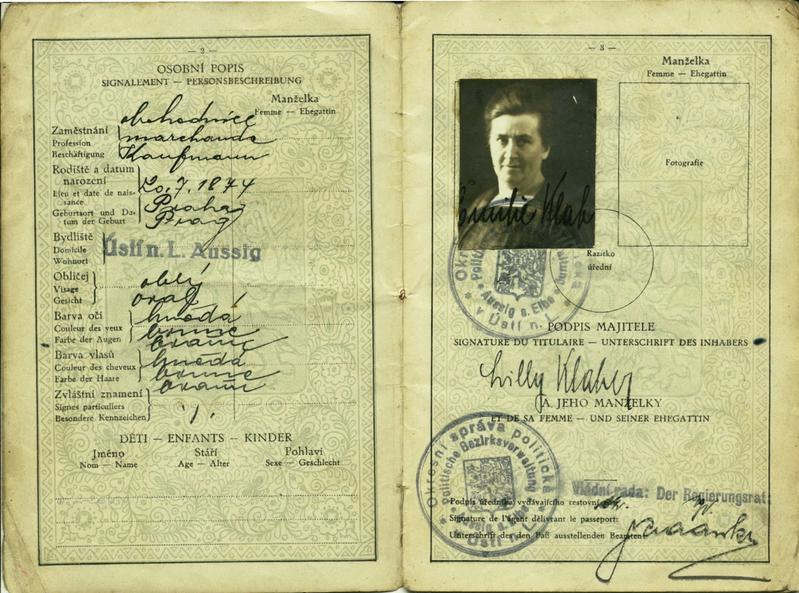 — 2 —
OSOBNÍ POPIS
SIGNALEMENT — PERSONSBESCHREIBUNG
Manželka
Femme — Ehegattin
Zaměstnání
Profession
Beschäftigung
obchodnice
marchande
Kaufmann
Rodiště a datum
narození
Lieu et date de nais-
sance
Geburtsort und Da-
tum der Geburt
20. 7. 1874
Praha
Prag
Bydliště
Domicile
Wohnort
Ústí n. L. Aussig
Obličej
Visage
Gesicht
oblý
oval
Barva očí
Couleur des yeux
Farbe der Augen
hnědá
brune
braune
Barva vlasů
Couleur des cheveux
Farbe der Haare
hnědá
brune
braune
Zvláštní znamení
Signes particuliers
Besondere Kennzeichen
DĚTI — ENFANTS — KINDER
Jméno
Nom — Name
Stáří
Age — Alter
Pohlaví
Sexe — Geschlecht
— 3 —
Manželka
Femme — Ehegattin
Fotografie
Razítko
úřední
Okresní
Aussig a. Elbe
v Ústí n. L.
PODPIS MAJITELE
SIGNATURE DU TITULAIRE — UNTERSCHRIFT DES INHABERS
A JEHO MANŽELKY
ET DE SA FEMME — UND SEINER EHEGATTIN
Okresní správa politická
Politische Bezirksverwaltung
Aussig a. Elbe
Ústí n. L.
Vládní rada: Der Regierungsrat
Podpis úředníka vydávajícího cestovní
Signature de l'agent délivrant le passeport:
Unterschrift des den Paß ausstellenden Beamten